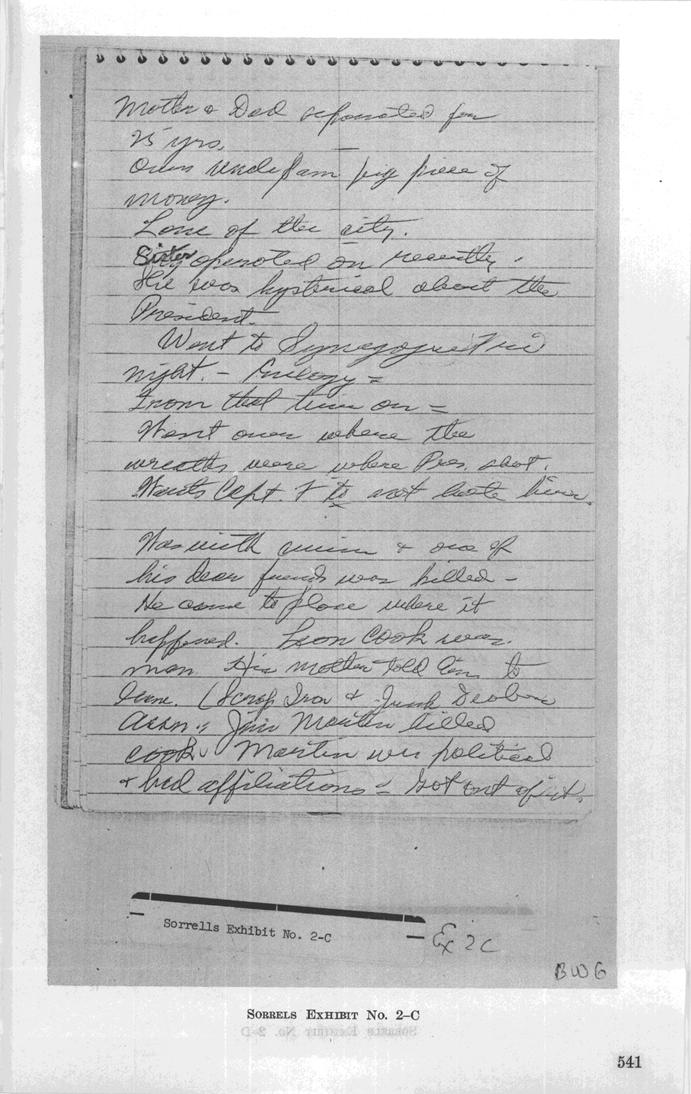 Mother & Dad separated for
25 yrs.
Owes Uncle Sam big piece of
money.
Love of the city.
Sister operated on recently.
He was hysterical about the
President.
Went to Synagogue Fri
night. - Eulogy =
From that time on =
Went over where the
wreaths were where Pres. shot.
Wants Capt. F to not hate him.
Was with union & one of
his dear friends was killed -
He came to place where it
happened. Leon Cook was
man. His mother told him to
leave. (Scrap Iron & Junk Dealers
Assn. Martin killed
Cook Martin was political
& had affiliations = Got out of it.
Sorrells Exhibit No. 2-C
Ex 2C
BWG
SORRELS EXHIBIT NO. 2-C
541